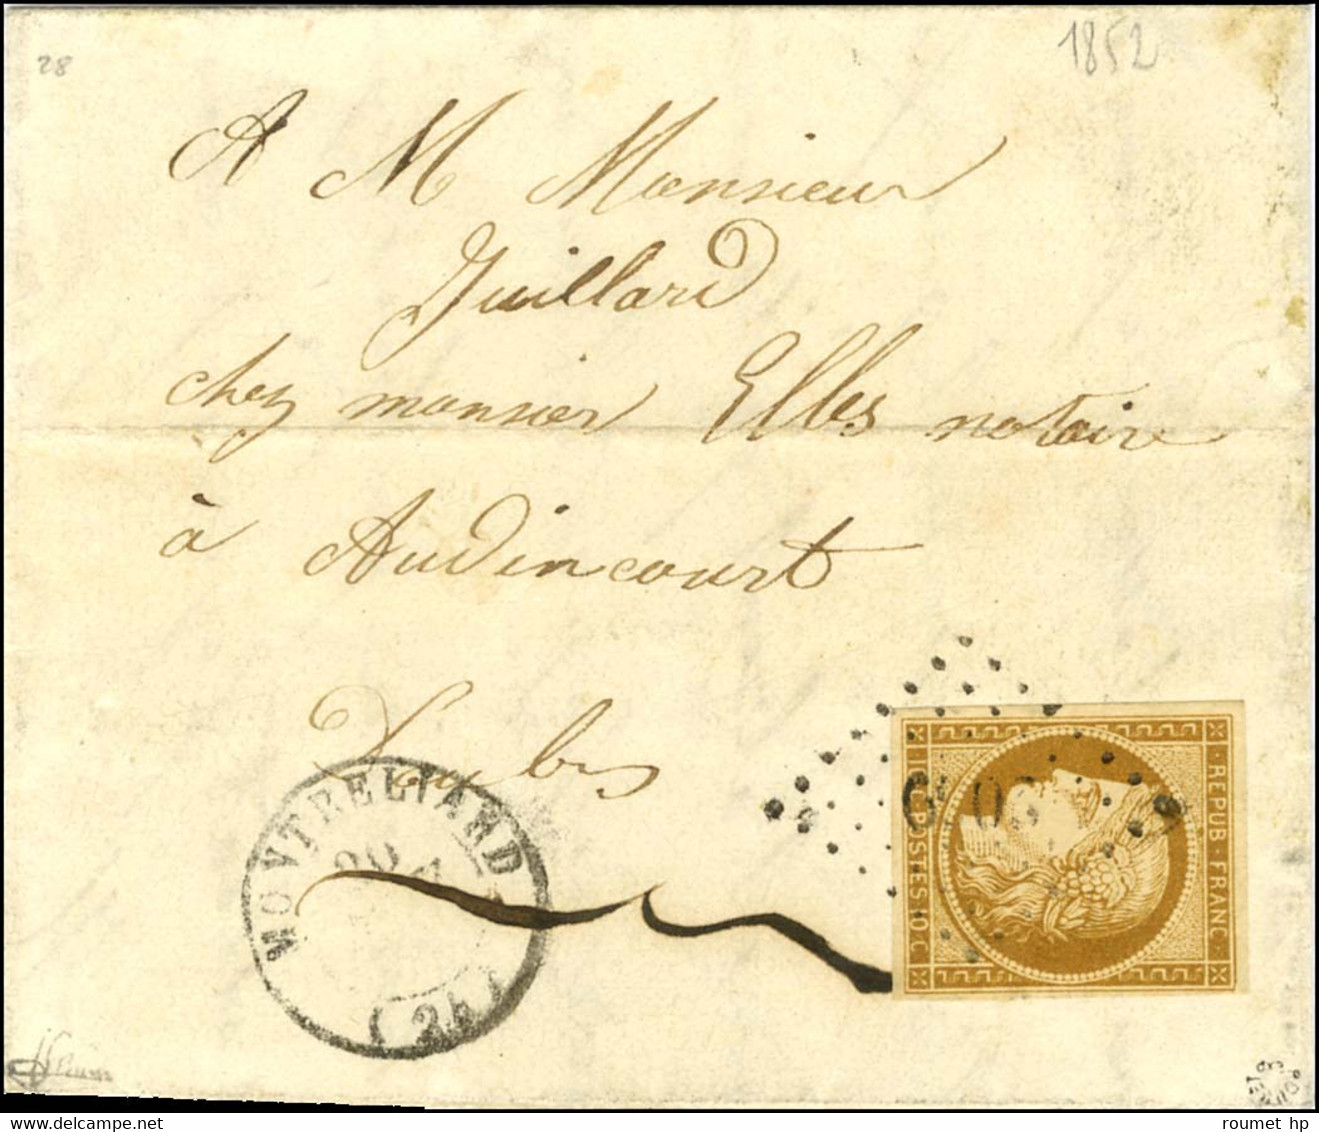 28
1852
A M Monsieur
Juillard
chez monsier Elles notaire
à Audincourt
Doubs
MONTBELIARD
(24)
REPUB · FRANC ·
10 C POSTES 10 C
roumet hp
delcampe.net